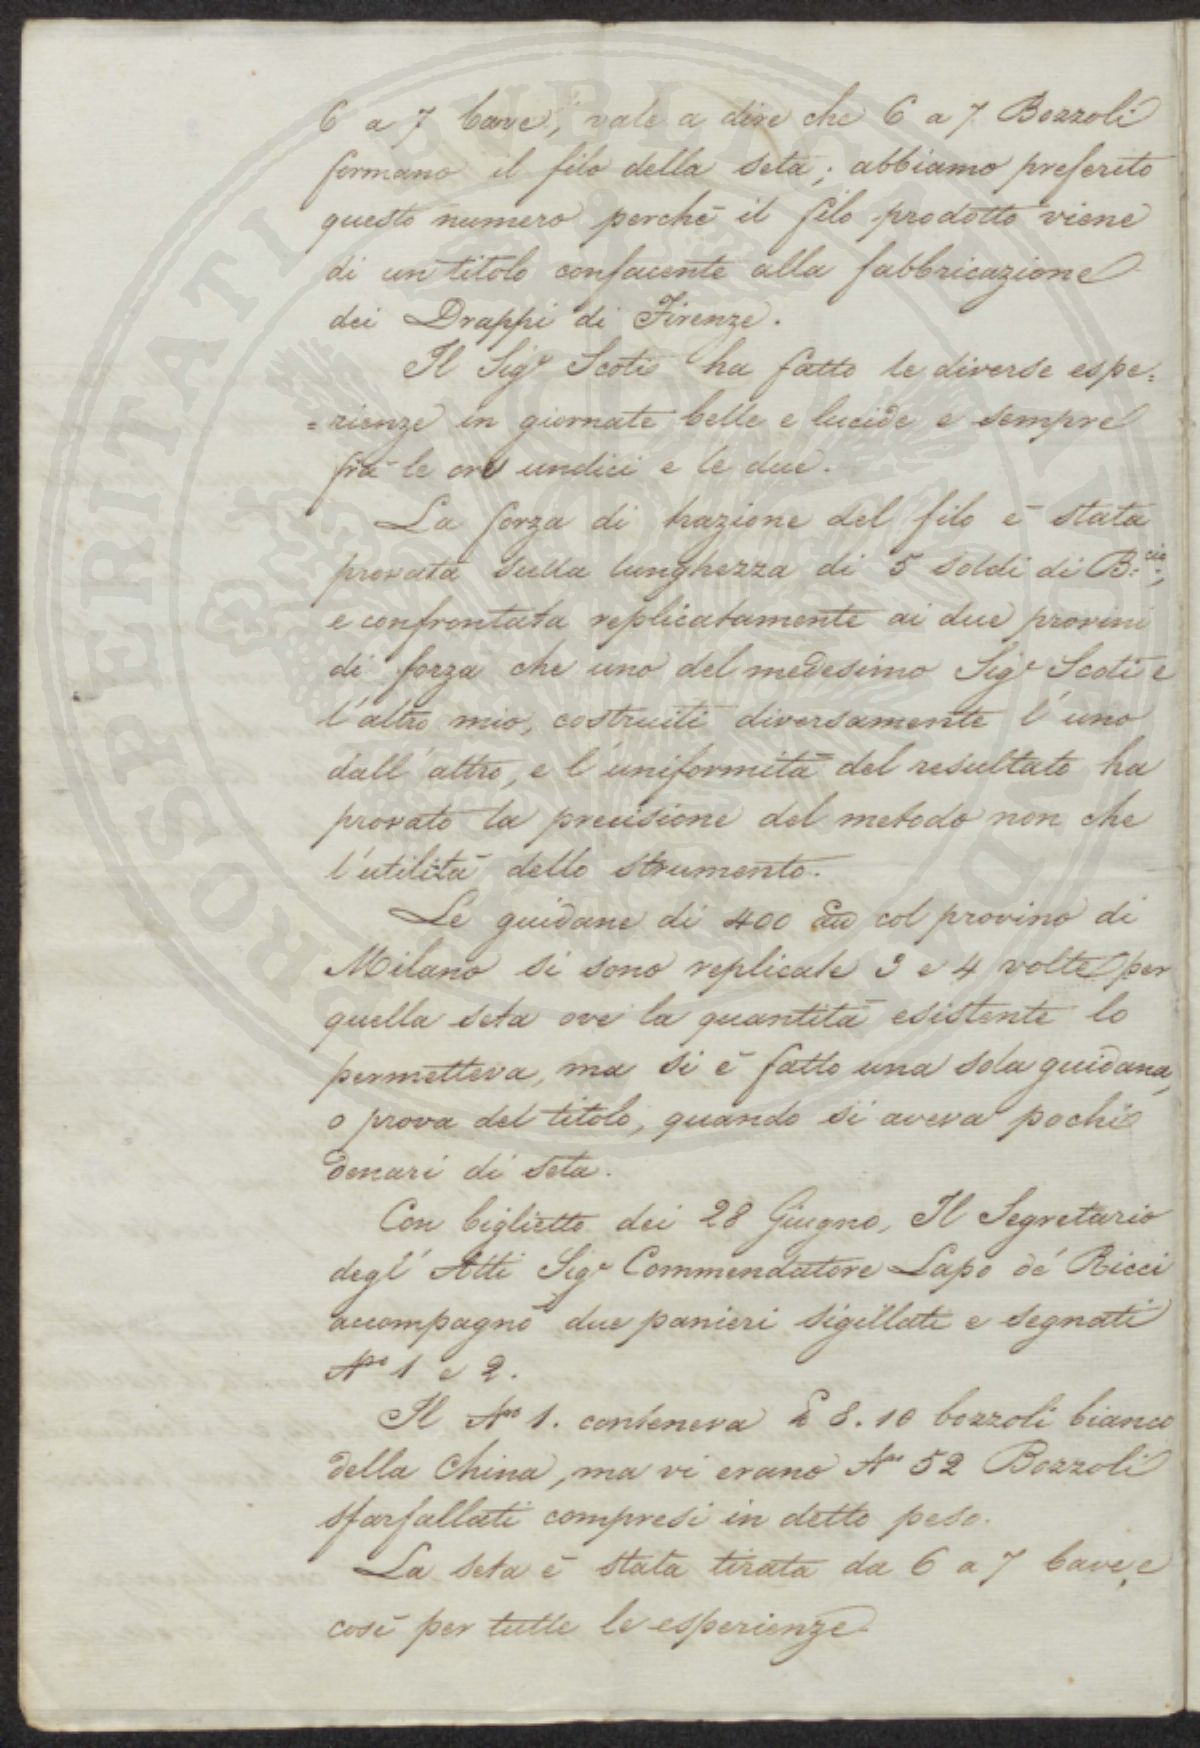 6 a 7 bave, vale a dire che 6 a 7 Bozzoli
formano il filo della seta; abbiamo preferito
questo numero perchè il filo prodotto viene
di un titolo confacente alla fabbricazione
dei Drappi di Firenze.
Il Sigr Scoti ha fatto le diverse espe=
=rienze in giornate belle e lucide e sempre
fra le ore undici e le due.
La forza di trazione del filo è stata
provata sulla lunghezza di 5 soldi di B:cia;
e confrontata replicatamente ai due provini
di forza che uno del medesimo Sigr Scoti e
l'altro mio, costruiti diversamente l'uno
dall'altro, e l'uniformità del resultato ha
provato la precisione del metodo non che
l'utilità dello strumento.
Le guidane di 400 col provino di
Milano si sono replicate 3 e 4 volte per
quella seta ove la quantità esistente lo
permetteva, ma si è fatto una sola guidana,
o prova del titolo, quando si aveva pochi
denari di seta.
Con biglietto dei 28 Giugno, Il Segretario
degl'Atti Sigr Commendatore Lapo de' Ricci
accompagnò due panieri sigillati e segnati
No 1 e 2.
Il No 1. conteneva £ 8.10 bozzoli bianco
della China, ma vi erano No 52 Bozzoli
sfarfallati compresi in detto peso.
La seta è stata tirata da 6 a 7 bave, e
così per tutte le esperienze
PROSPERITATI PUBLICAE AUGENDAE